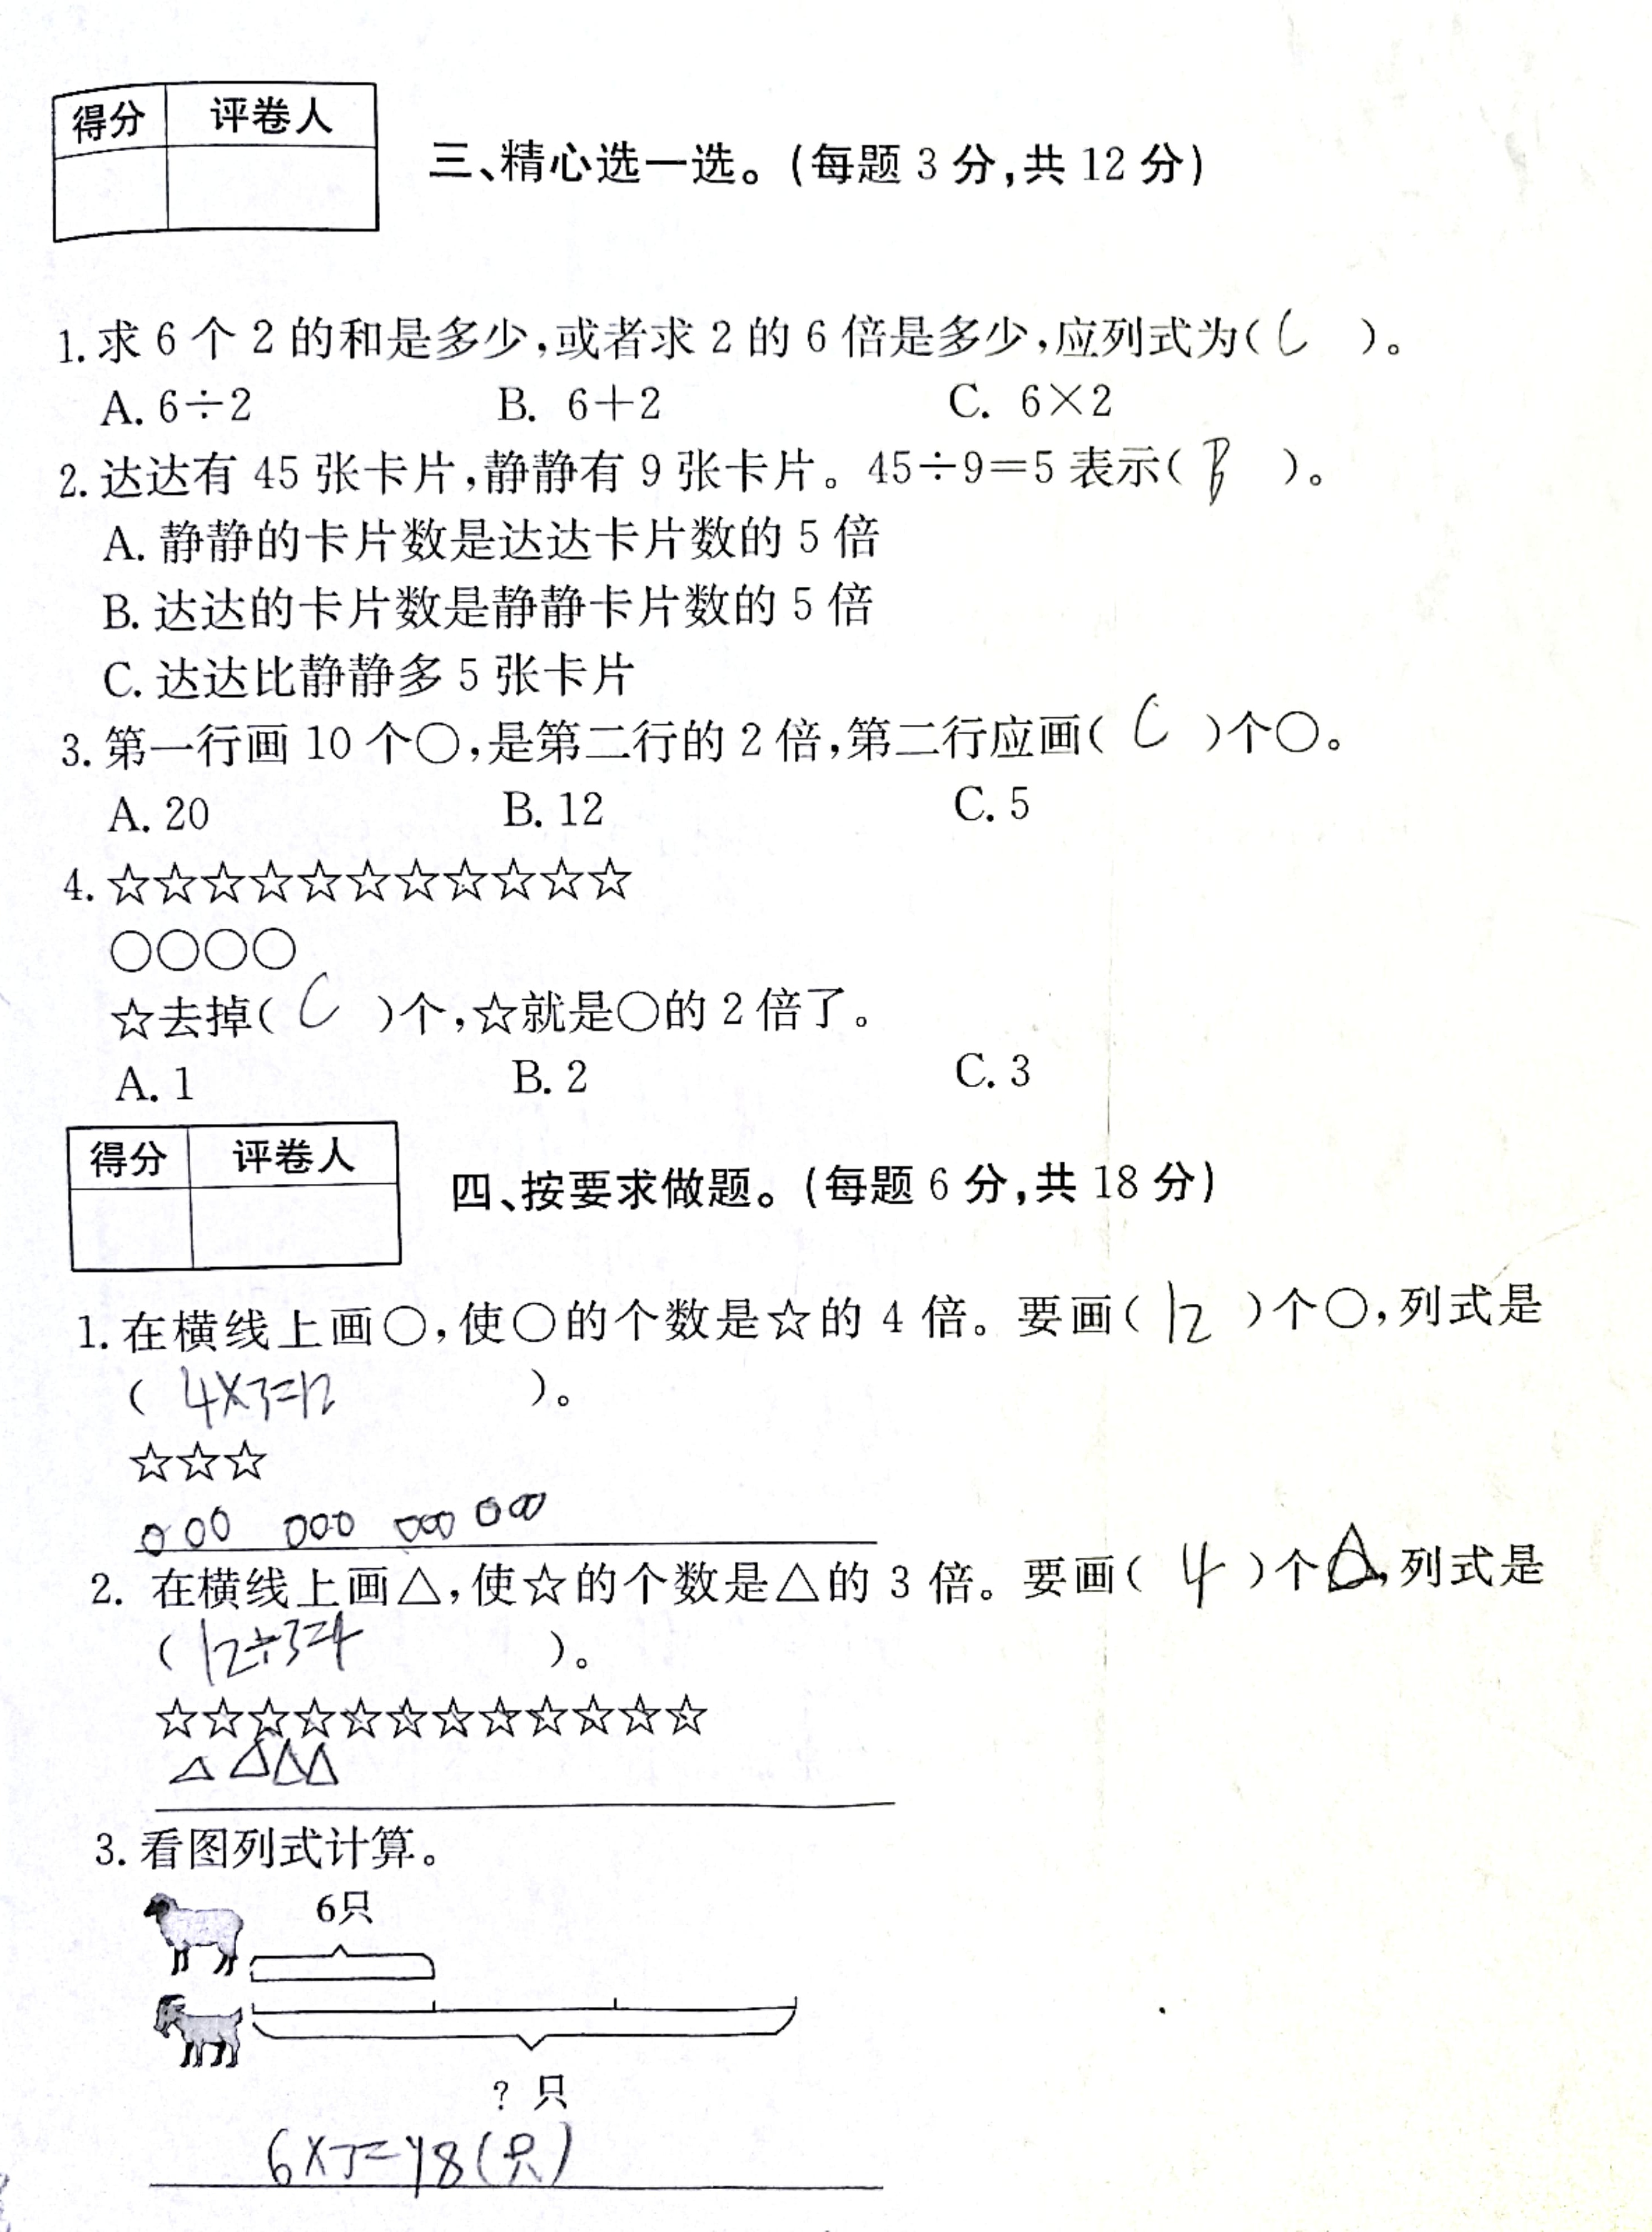 得分 评卷人
三、精心选一选。(每题 3 分,共 12 分)
1. 求 6 个 2 的和是多少,或者求 2 的 6 倍是多少,应列式为( C )。
A. 6÷2 B. 6+2 C. 6×2
2. 达达有 45 张卡片,静静有 9 张卡片。45÷9=5 表示( B )。
A. 静静的卡片数是达达卡片数的 5 倍
B. 达达的卡片数是静静卡片数的 5 倍
C. 达达比静静多 5 张卡片
3. 第一行画 10 个○,是第二行的 2 倍,第二行应画( C )个○。
A. 20 B. 12 C. 5
4. ☆☆☆☆☆☆☆☆☆☆☆
○○○○
☆去掉( C )个,☆就是○的 2 倍了。
A. 1 B. 2 C. 3
得分 评卷人
四、按要求做题。(每题 6 分,共 18 分)
1. 在横线上画○,使○的个数是☆的 4 倍。要画( 12 )个○,列式是
( 4×3=12 )。
☆☆☆
○○○ ○○○ ○○○ ○○○
2. 在横线上画△,使☆的个数是△的 3 倍。要画( 4 )个△,列式是
( 12÷3=4 )。
☆☆☆☆☆☆☆☆☆☆☆☆
△△△△
3. 看图列式计算。
6只
? 只
6×3=18(只)